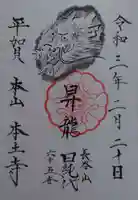 令和三年二月二十日
昇龍
長谷山
平賀 本山 本土寺